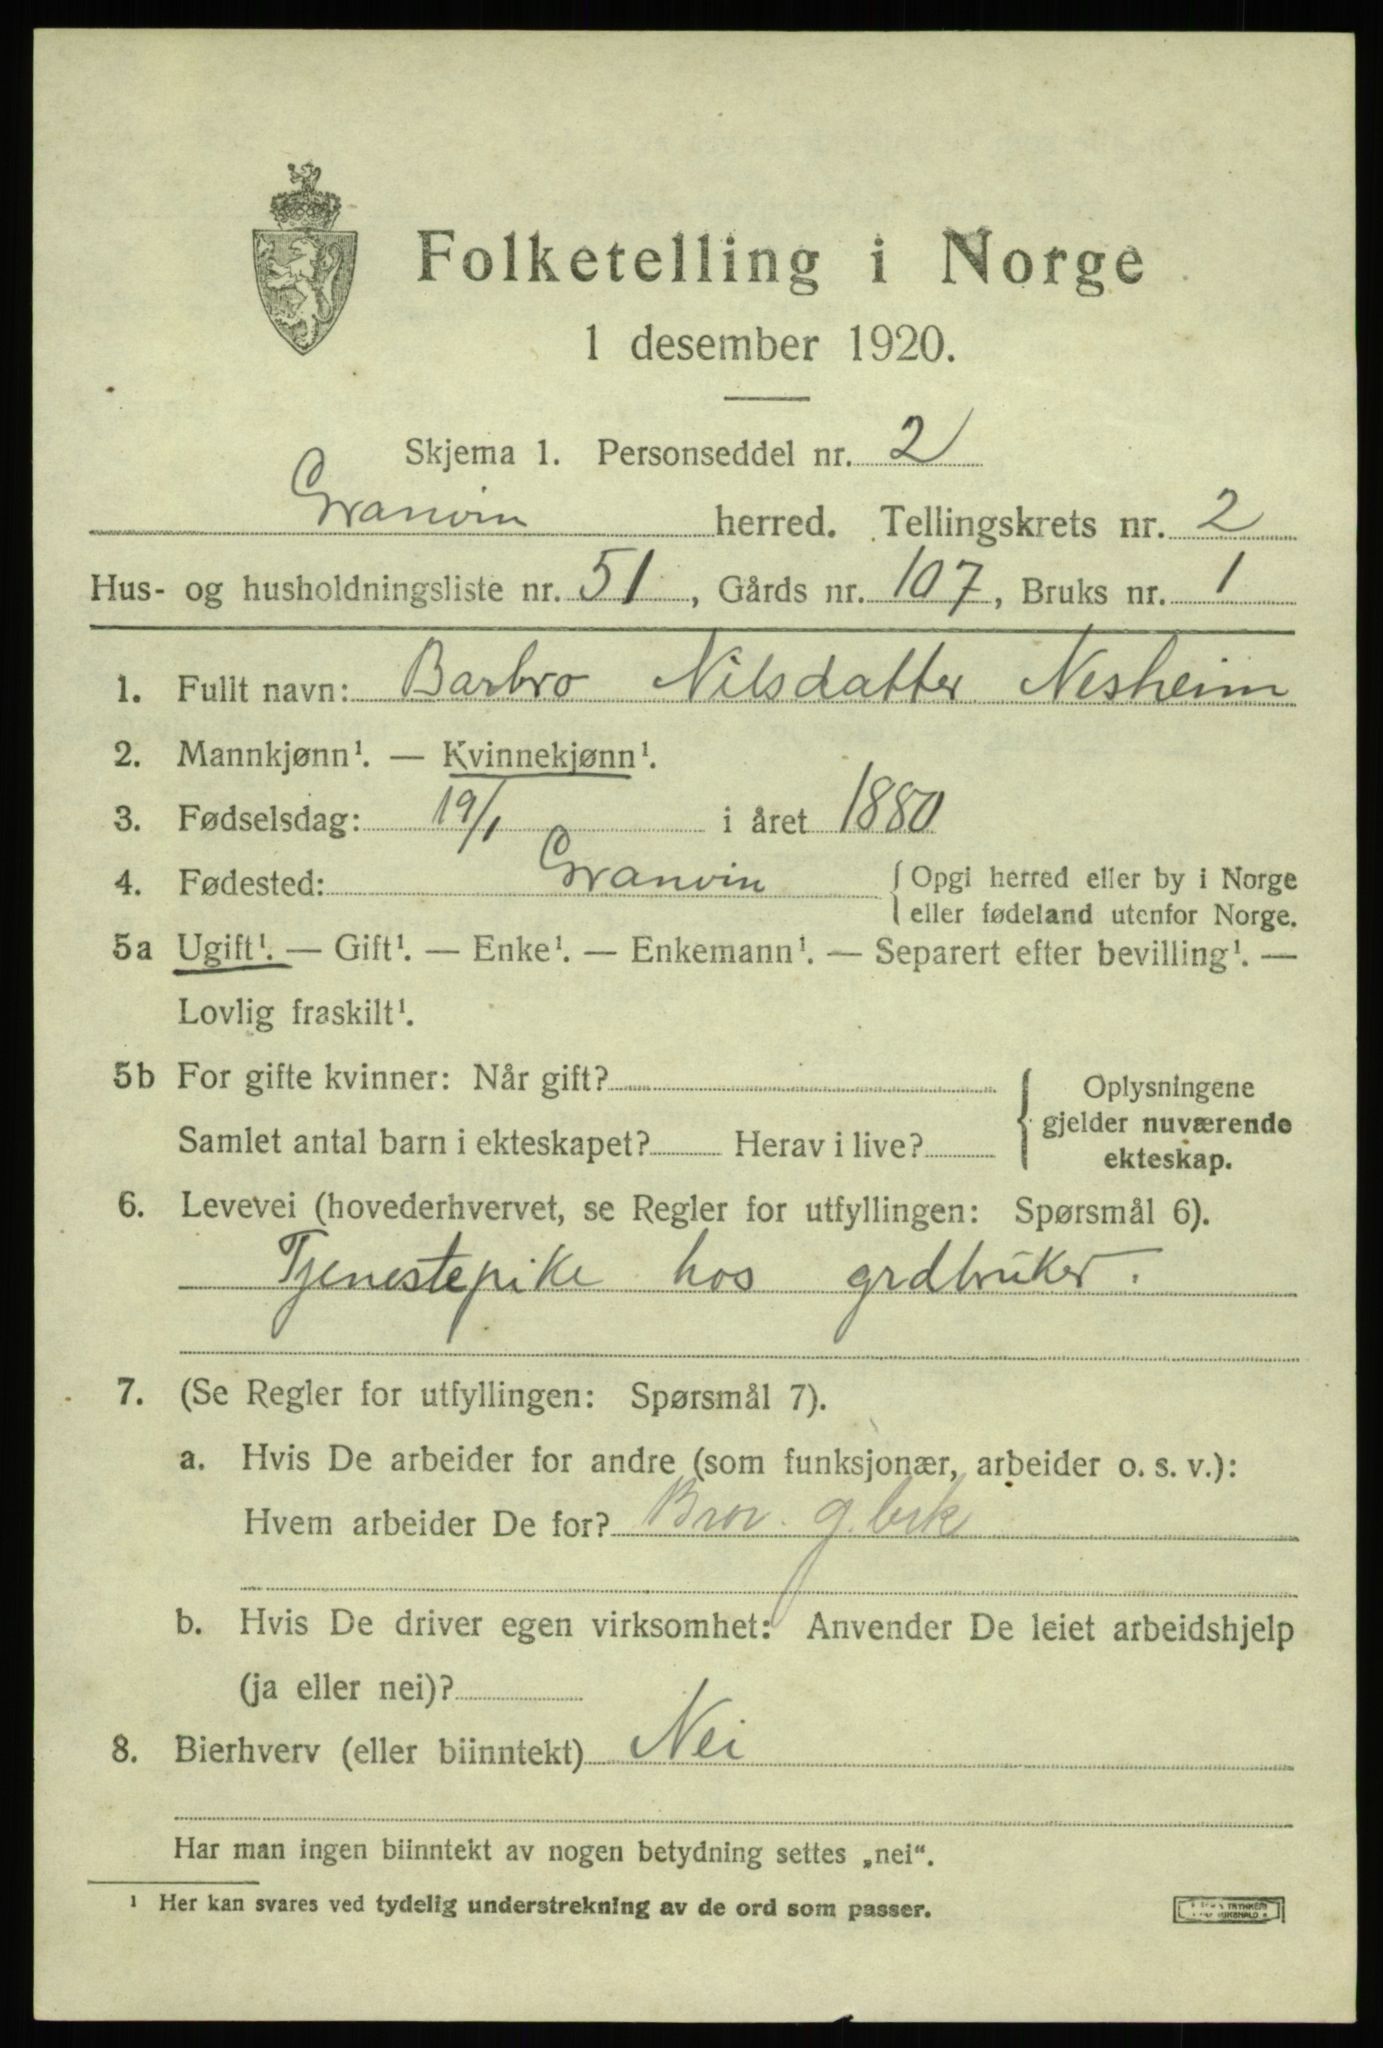 Folketelling i Norge
1 desember 1920.
Skjema 1. Personseddel nr. 2
Granvin herred. Tellingskrets nr. 2
Hus- og husholdningsliste nr. 51, Gårds nr. 107, Bruks nr. 1
1. Fullt navn: Barbro Nilsdatter Nesheim
2. Mannkjønn¹. — Kvinnekjønn¹.
3. Fødselsdag: 19/1 i året 1880
4. Fødested: Granvin { Opgi herred eller by i Norge
eller fødeland utenfor Norge.
5a Ugift¹. — Gift¹. — Enke¹. — Enkemann¹. — Separert efter bevilling¹. —
Lovlig fraskilt¹.
5b For gifte kvinner: Når gift?
Samlet antal barn i ekteskapet? Herav i live?
{ Oplysningene
gjelder nuværende
ekteskap.
6. Levevei (hovederhvervet, se Regler for utfyllingen: Spørsmål 6).
Tjenestepike hos grdbruker.
7. (Se Regler for utfyllingen: Spørsmål 7).
a. Hvis De arbeider for andre (som funksjonær, arbeider o. s. v.):
Hvem arbeider De for? Bror g.brk
b. Hvis De driver egen virksomhet: Anvender De leiet arbeidshjelp
(ja eller nei)?
8. Bierhverv (eller biinntekt) Nei
Har man ingen biinntekt av nogen betydning settes „nei“.
¹ Her kan svares ved tydelig understrekning av de ord som passer.